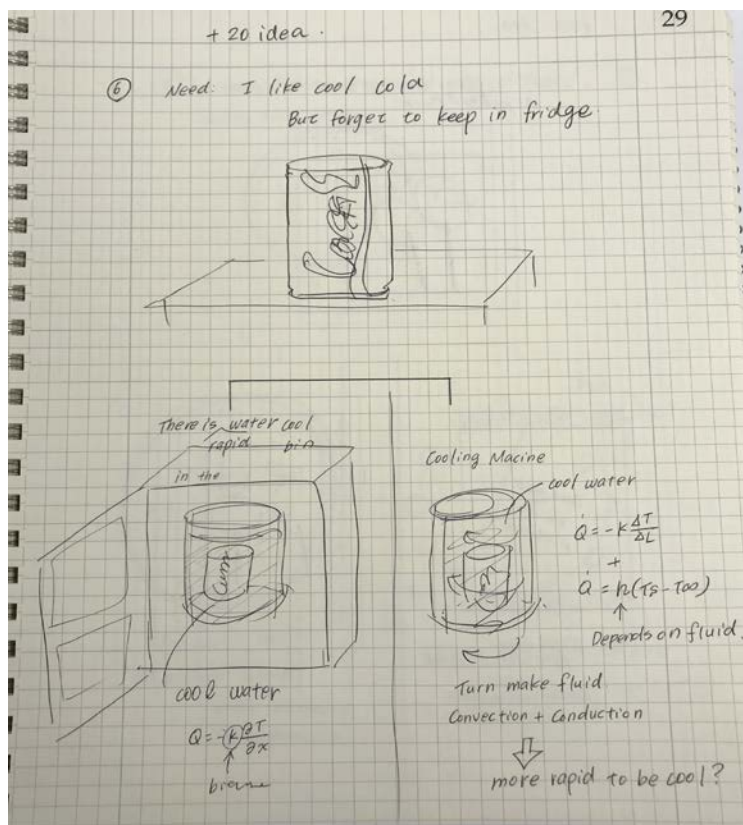 29
+ 20 idea.
⑥ Need: I like cool cold
But forget to keep in fridge.
There is water cool
rapid bin
in the
cool water
Q = -k ∂T/∂x
Cooling Macine
cool water
Q̇ = -k ΔT/ΔL
+
Q̇ = h(Ts - T∞)
Depends on fluid.
Turn make fluid
Convection + Conduction
more rapid to be cool?